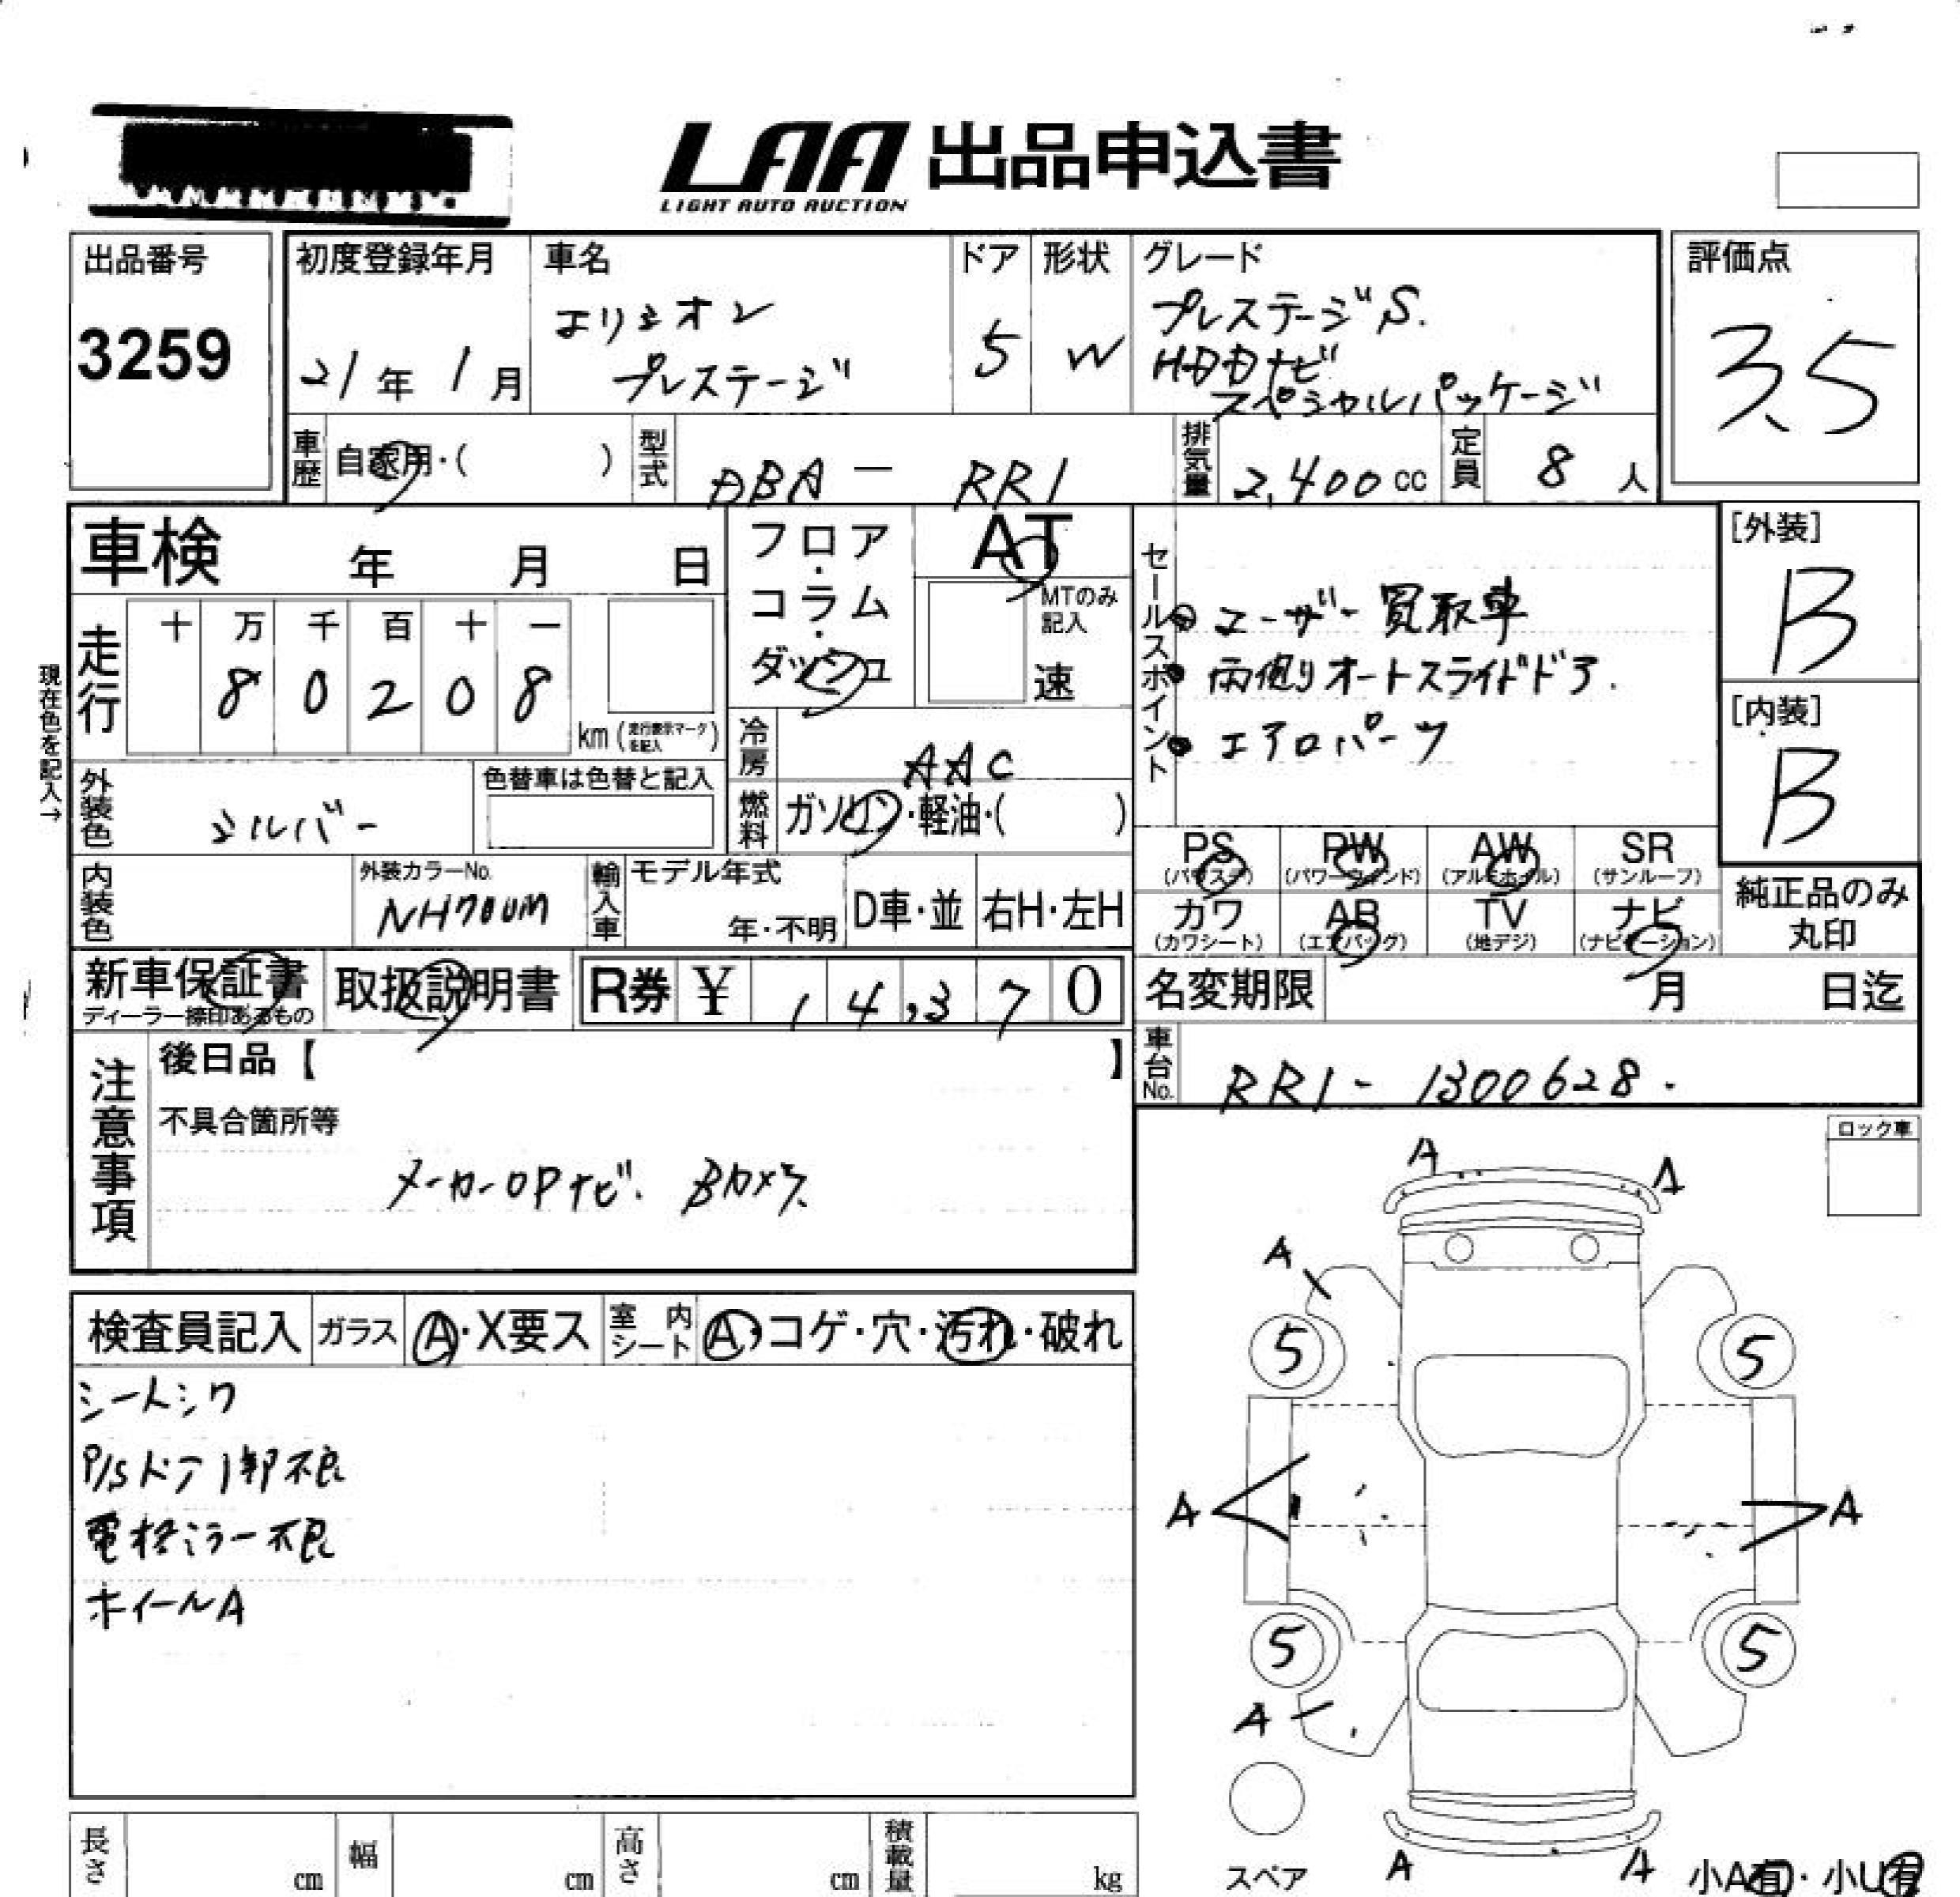 LAA 出品申込書
LIGHT AUTO AUCTION
出品番号
3259
初度登録年月
21年 1月
車名
エリシオン
プレステージ
ドア
5
形状
W
グレード
プレステージS.
HDDナビ
スペシャルパッケージ
評価点
3.5
車歴
自家用・( )
型式
DBA - RR1
排気量
2,400cc
定員
8人
車検 年 月 日
フロア・コラム・ダッシュ
AT
MTのみ記入
速
セールスポイント
ユーザー買取車
両側オートスライドドア.
エアロパーツ
[外装]
B
[内装]
B
現在色を記入→
走行
十 万 千 百 十 一
8 0 2 0 8
km(走行表示マークを記入)
冷房
AAC
燃料
ガソリン・軽油・( )
外装色
シルバー
色替車は色替と記入
内装色
外装カラーNo.
NH700M
輸入車
モデル年式
年・不明
D車・並
右H・左H
PS
(パワステ)
PW
(パワーウィンド)
AW
(アルミホイル)
SR
(サンルーフ)
カワ
(カワシート)
AB
(エアバッグ)
TV
(地デジ)
ナビ
(ナビゲーション)
純正品のみ
丸印
新車保証書
ディーラー捺印あるもの
取扱説明書
R券 ¥ 14,370
名変期限 月 日迄
車台No.
RR1-1300628.
注意事項
後日品【 】
不具合箇所等
メーカーOPナビ. Bカメラ.
ロック車
検査員記入
ガラス
A・X要ス
室内シート
A・コゲ・穴・汚れ・破れ
シートシワ
P/Sドア1部不良
電格ミラー不良
ホイールA
A A
A
5 5
A A
5 5
A
A A
スペア
小A有・小U有
長さ cm
幅 cm
高さ cm
積載量 kg